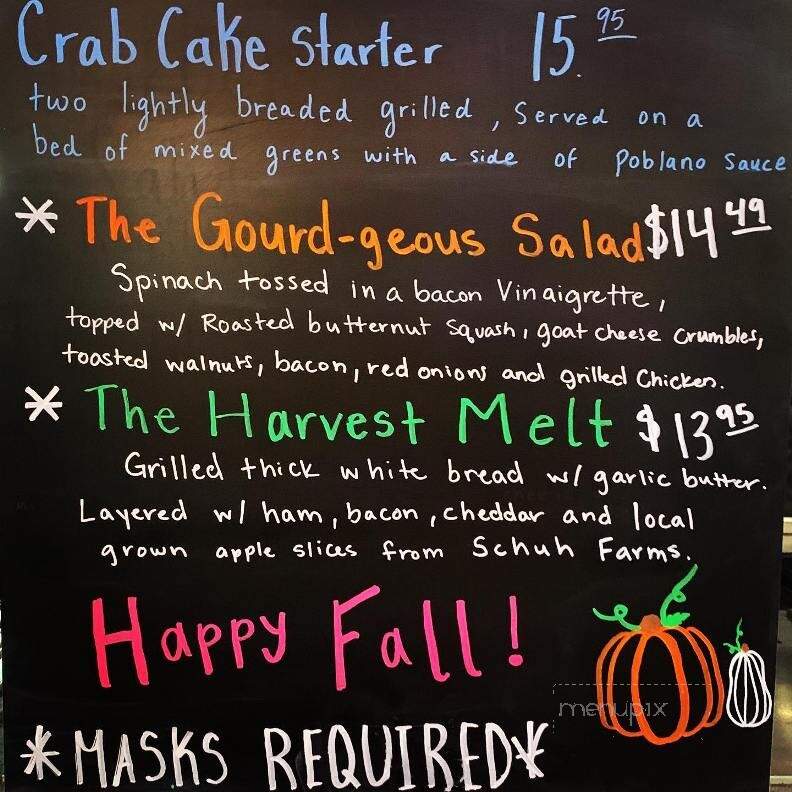 Crab Cake Starter 15.95
two lightly breaded grilled, Served on a
bed of mixed greens with a side of Poblano Sauce
* The Gourd-geous Salad $14 49
Spinach tossed in a bacon Vinaigrette,
topped w/ Roasted butternut squash, goat cheese crumbles,
toasted walnuts, bacon, red onions and grilled Chicken.
* The Harvest Melt $13 95
Grilled thick white bread w/ garlic butter.
Layered w/ ham, bacon, cheddar and local
grown apple slices from Schuh Farms.
Happy Fall!
menupix
*MASKS REQUIRED*